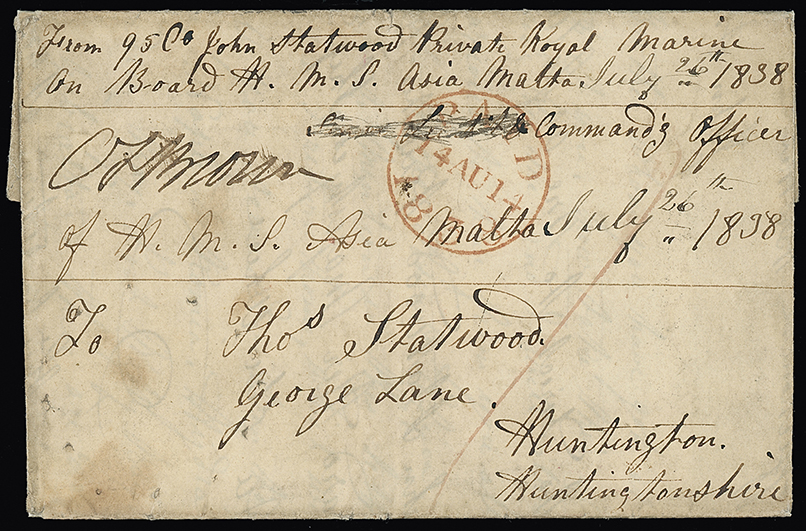 From 95 Co John Statwood Private Royal Marine
On Board H. M. S. Asia Malta July 26th 1838
Command'g Officer
of H. M. S. Asia Malta July 26th 1838
14 AU 14
To Thos Statwood
George Lane.
Huntington.
Huntingtonshire